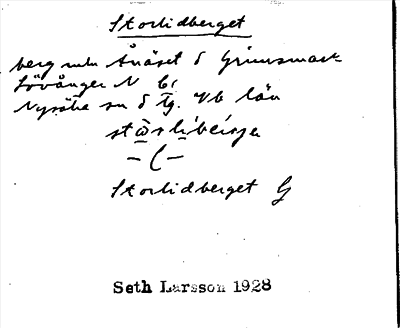 Storlidberget
berg mln Ånäset o Grimsmark
Lövånger N bi
Nysätra sn o tg. Vb län
Storlidberget G
Seth Larsson 1928